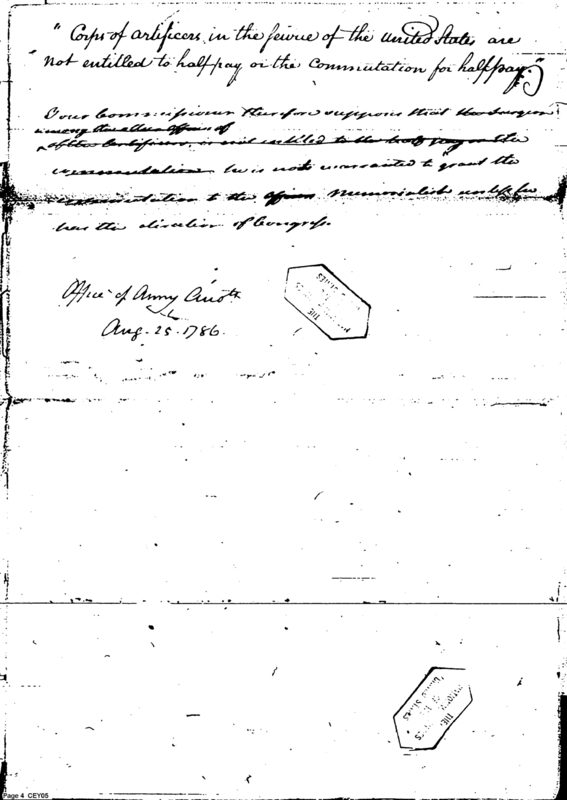 "Corps of artificers in the service of the United States are
not entitled to half pay or the Commutation for half pay."
Your Commissioner therefore supposes that the Surgeon
among the other officers of
of the Artificers, is not entitled to the half pay or the
commutation he is not warranted to grant the
commutation to the officer Memorialist unless he
has the direction of Congress.
Office of Army Accots
Aug. 25. 1786.
THE
UNITED STATES
THE
UNITED STATES
Page 4 CEY05